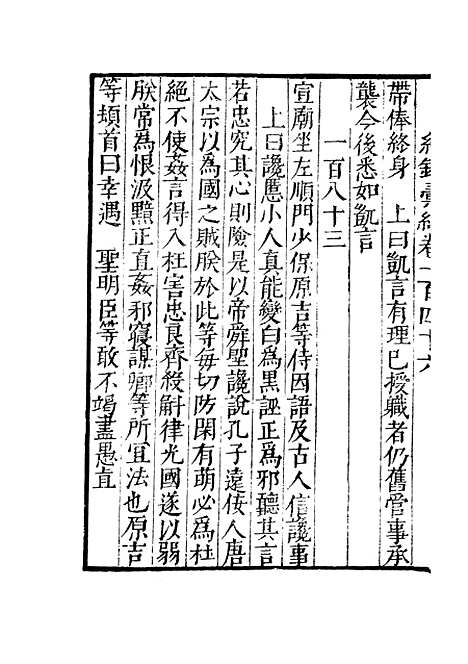 紀錄彙編卷一百四十六
帶俸終身　上曰凱言有理已授職者仍舊管事承
襲今後悉如凱言
一百八十三
宣廟坐左順門少保原吉等侍因語及古人信讒事
上曰讒慝小人真能變白為黑誣正為邪聽其言
若忠究其心則險是以帝舜聖讒說孔子遠佞人唐
太宗以為國之賊朕於此等每切防閑有萌必為杜
絕不使姦言得入枉害忠良齊殺斛律光國遂以弱
朕常為恨汲黯正直姦邪寢謀卿等所宜法也原吉
等頓首曰幸遇　聖明臣等敢不竭盡愚直